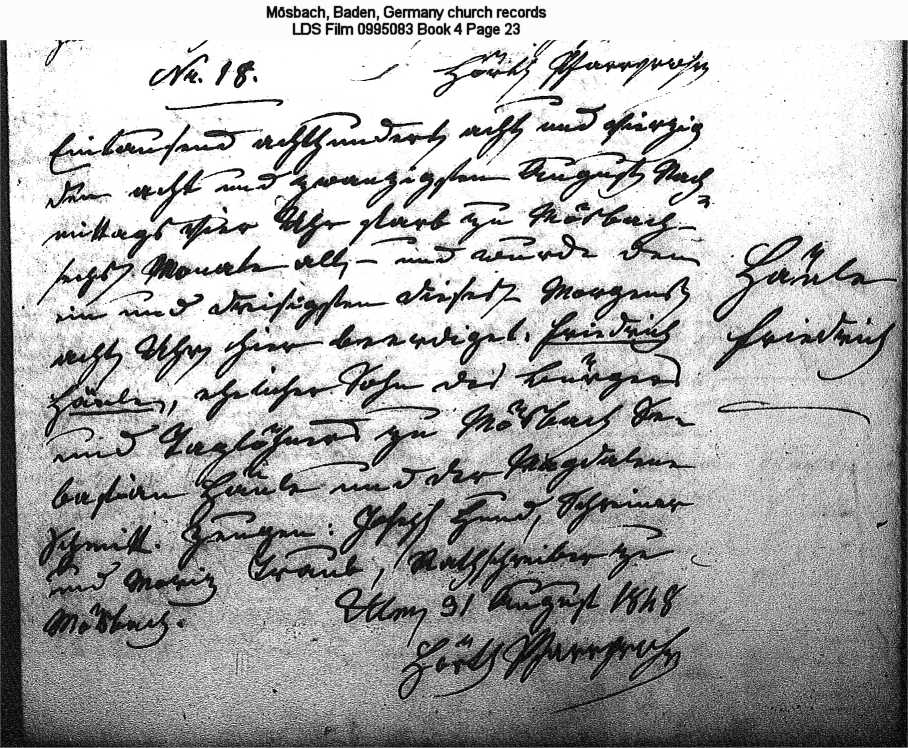 Mösbach, Baden, Germany church records
LDS Film 0995083 Book 4 Page 23
Nr. 18.
Hörth Pfarrverw
Eintausend achthundert acht und vierzig
den acht und zwanzigsten August Nach
mittags vier Uhr starb zu Mösbach
sechs Monate alt, – und wurde den
ein und dreisigsten dieses Morgens
acht Uhr hier beerdiget. Friedrich
Häule, ehelicher Sohn des Bürgers
und Taglöhners zu Mösbach Se=
bastian Häule und der Magdalena
Schmitt. Zeugen: Joseph Hund, Schreiner
und Moritz Traub, Rathschreiber zu
Mösbach.
Ulm, 31 August 1848
Hörth Pfarrverw
Häule
Friedrich